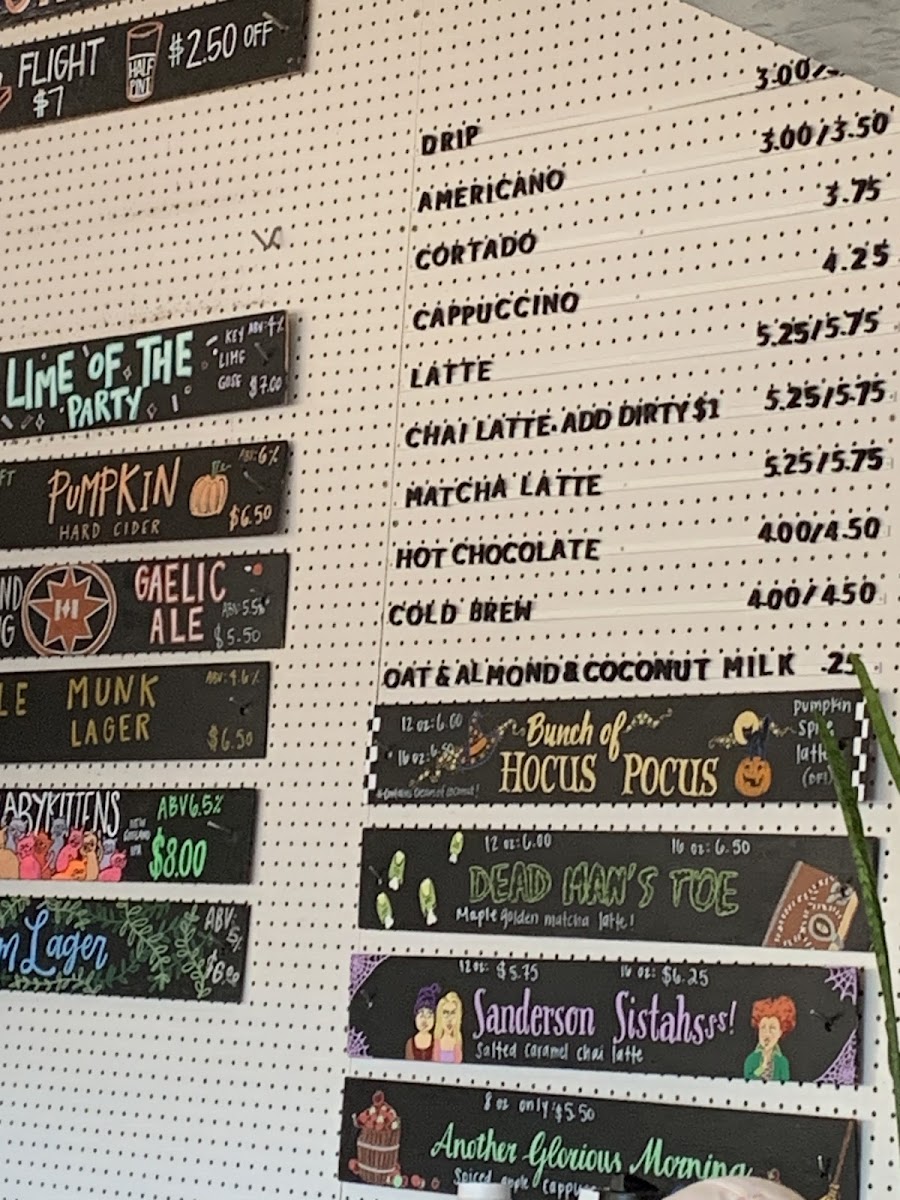 FLIGHT
$7
HALF
PINT
$2.50 OFF
LIME OF THE
PARTY
KEY
LIME
GOSE
ABV: 4%
$7.00
PUMPKIN
HARD CIDER
ABV: 6%
$6.50
GAELIC
ALE
ABV: 5.5%
$5.50
MUNK
LAGER
ABV: 4.6%
$6.50
ABYKITTENS
ABV 6.5%
$8.00
Lager
ABV:
5%
DRIP 3.00/
AMERICANO 3.00/3.50
CORTADO 3.75
CAPPUCCINO 4.25
LATTE 5.25/5.75
CHAI LATTE. ADD DIRTY $1 5.25/5.75
MATCHA LATTE 5.25/5.75
HOT CHOCOLATE 4.00/4.50
COLD BREW 4.00/4.50
OAT & ALMOND & COCONUT MILK .25
12 oz: 6.00
16 oz: 6.50
Bunch of
HOCUS POCUS
pumpkin
12 oz: 6.00 16 oz: 6.50
DEAD MAN'S TOE
Maple golden matcha latte!
12 oz: $5.75 16 oz: $6.25
Sanderson Sistahsss!
Salted caramel chai latte
8 oz only: $5.50
Another Glorious Morning
Spiced apple